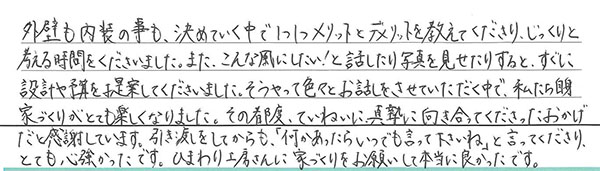 外壁も内装の事も、決めていく中で1つ1つメリットとデメリットを教えてくださり、じっくりと
考える時間をくださいました。また、こんな風にしたい!と話したり写真を見せたりすると、すぐに
設計や予算をお提案してくださいました。そうやって色々とお話しをさせていただく中で、私たち自身
家づくりがとても楽しくなりました。その都度、ていねいに、真摯に向き合てくださったおかげ
だと感謝しています。引き渡しをしてからも、「何かあったらいつでも言って下さいね」と言ってくださり、
とても心強かったです。ひまわり工房さんに家づくりをお願いして本当に良かったです。